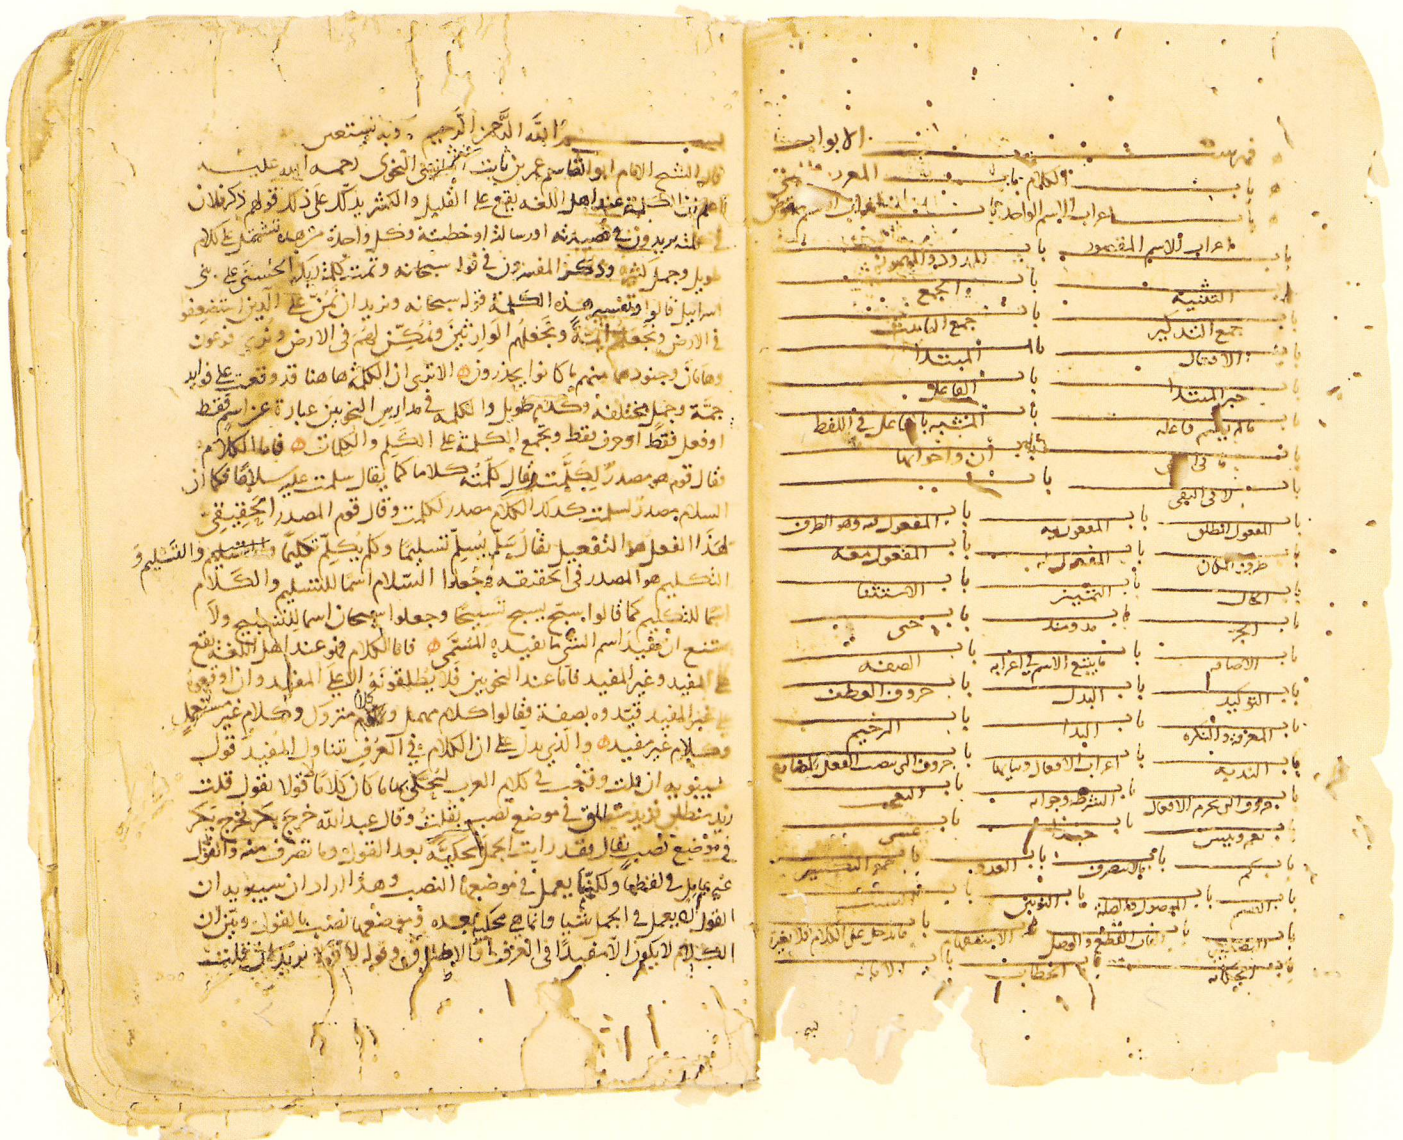 فهرست الابواب
باب الكلام باب المعرب
باب اعراب الاسم الواحد باب
باب اعراب الاسم المقصور باب الممدود والمهموز
باب التثنية باب الجمع
باب جمع التذكير باب جمع التانيث
باب الافعال باب المبتدا
باب خبر المبتدا باب الفاعل
باب ما لم يسم فاعله باب المشبه بالفاعل في اللفظ
باب باب ان واخواتها
باب لا في النفي باب
باب المفعول المطلق باب المفعول به باب المفعول فيه وهو الظرف
باب ظروف المكان باب المفعول له باب المفعول معه
باب الحال باب التمييز باب الاستثنا
باب الجر باب مذ ومنذ باب حتى
باب الاضافه باب ما يتبع الاسم في اعرابه باب الصفه
باب التوكيد باب البدل باب حروف العطف
باب المعرفة والنكره باب الندا باب الترخيم
باب الندبه باب اعراب الافعال وبنايها باب حروف التي تنصب الفعل المضارع
باب حروف التي تجزم الافعال باب الشرط وجوابه باب التعجب
باب نعم وبيس باب حبذا باب عسى
باب كم باب ما لا ينصرف باب العدد باب جمع التكسير
باب القسم باب الموصول والصلة باب النونين باب النسب
باب التصغير باب الفات القطع والوصل باب الاستفهام باب ما يدخل على الكلام فلا يغيره
باب الحكايه باب الخطاب باب الاماله
بسم الله الرحمن الرحيم وبه نستعين
قال الشيخ الامام ابو القاسم عمر بن ثابت الثمانيني النحوي رحمه الله عليه
اعلم ان الكلمة عند اهل اللغه يقع على القليل والكثير يدلك على ذلك قولهم ذكر فلان
في كلمته يريدون في قصيدته او رسالته او خطبته وكل واحدة من هذه تشتمل على كلام
طويل وجمل كثيره وذكر المفسرون في قوله سبحانه وتمت كلمة ربك الحسنى على بني
اسرائيل قالوا وتفسير هذه الكلمة قوله سبحانه ونريد ان نمن على الذين استضعفوا
في الارض ونجعلهم ائمة ونجعلهم الوارثين ونمكن لهم في الارض ونري فرعون
وهامان وجنودهما منهم ما كانوا يحذرون الا ترى ان الكلمة ها هنا قد وقعت على فوايد
جمة وجمل مختلفه وكلام طويل والكلمه في مدارس النحويين عبارة عن اسم فقط
او فعل فقط او حرف فقط وتجمع الكلمة على الكلم والكلمات فاما الكلام
فقال قوم هو مصدر لكلمت يقال كلمته كلاما كما يقال سلمت عليه سلاما فكما ان
السلام مصدر لسلمت كذلك الكلام مصدر لكلمت وقال قوم المصدر الحقيقي
لهذا الفعل هو التفعيل يقال سلم يسلم تسليما وكلم يكلم تكليما والتسليم و
التكليم هو المصدر في الحقيقه وجعلوا السلام اسما للتسليم والكلام
اسما للتكليم كما قالوا سبح يسبح تسبيحا وجعلوا سبحان اسما للتسبيح ولا
يمتنع ان يفيد اسم الشي ما يفيده المسمى فاما الكلام فهو عند اهل اللغه يقع
على المفيد وغير المفيد فاما عند النحويين فلا يطلقونه الا على المفيد وان اوقعوه
على غير المفيد قيدوه بصفة فقالوا كلام مهمل وكلام متروك وكلام غير مستعمل
وكلام غير مفيد والذي يدل على ان الكلام في العرف يتناول المفيد قول
سيبويه ان قلت وقعت في كلام العرب ليحكى بها ما كان كلاما لا قولا تقول قلت
زيد منطلق فزيد منطلق في موضع نصب بقلت وقال عبد الله خرج بكر فخرج بكر
في موضع نصب بقال فقد رايت الجمل محكية بعد القول وما تصرف منه والقول
غير عامل في لفظها ولكنه يعمل في موضعها النصب وهذا اراد ان سيبويه ان
القول لا يعمل في الجمل شيا وانما هي محكية بعده في موضعها نصب بالقول وبين ان
الكلام لا يكون الا مفيدا في العرف والاطلاق وقوله لا قولا يريد ان قلت